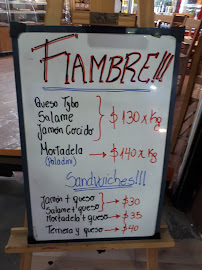 FIAMBRE!!!
Queso Tybo
Salame
Jamón Cocido
$130 x Kg
Mortadela
(Paladini)
$140 x Kg
Sandwiches!!!
Jamón + queso
Salame + queso
$30
Mortadela + queso $35
Ternera y queso $40